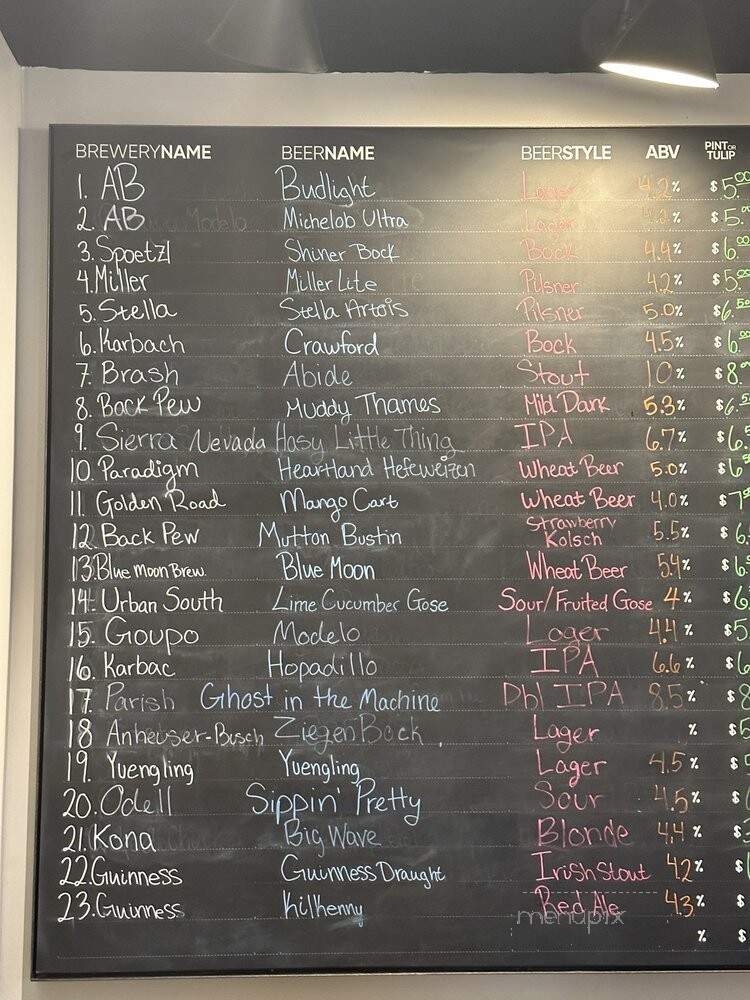 BREWERYNAME BEERNAME BEERSTYLE ABV PINT OR TULIP
1. AB Budlight Lager 4.2% $5.00
2. AB Michelob Ultra Lager 4.2% $5.
3. Spoetzl Shiner Bock Bock 4.4% $6.00
4. Miller Miller Lite Pilsner 4.2% $5.00
5. Stella Stella Artois Pilsner 5.0% $6.50
6. Karbach Crawford Bock 4.5% $6.00
7. Brash Abide Stout 10% $8.
8. Back Pew Muddy Thames Mild Dark 5.3% $6.5
9. Sierra Nevada Hasy Little Thing IPA 6.7% $6.5
10. Paradigm Heartland Hefeweizen Wheat Beer 5.0% $6.5
11. Golden Road Mango Cart Wheat Beer 4.0% $7.5
12. Back Pew Mutton Bustin Strawberry Kolsch 5.5% $6.
13. Blue Moon Brew. Blue Moon Wheat Beer 5.4% $6.
14. Urban South Lime Cucumber Gose Sour/Fruited Gose 4% $6.
15. Goupo Modelo Lager 4.4% $5
16. Karbac Hopadillo IPA 6.6% $6
17. Parish Ghost in the Machine Dbl IPA 8.5% $8
18 Anheuser-Busch ZiegenBock. Lager % $5
19. Yuengling Yuengling Lager 4.5% $5
20. Odell Sippin' Pretty Sour 4.5% $
21. Kona Big Wave Blonde 4.4% $
22. Guinness Guinness Draught Irish Stout 4.2% $
23. Guinness Kilkenny Red Ale 4.3% $
menupix
% $